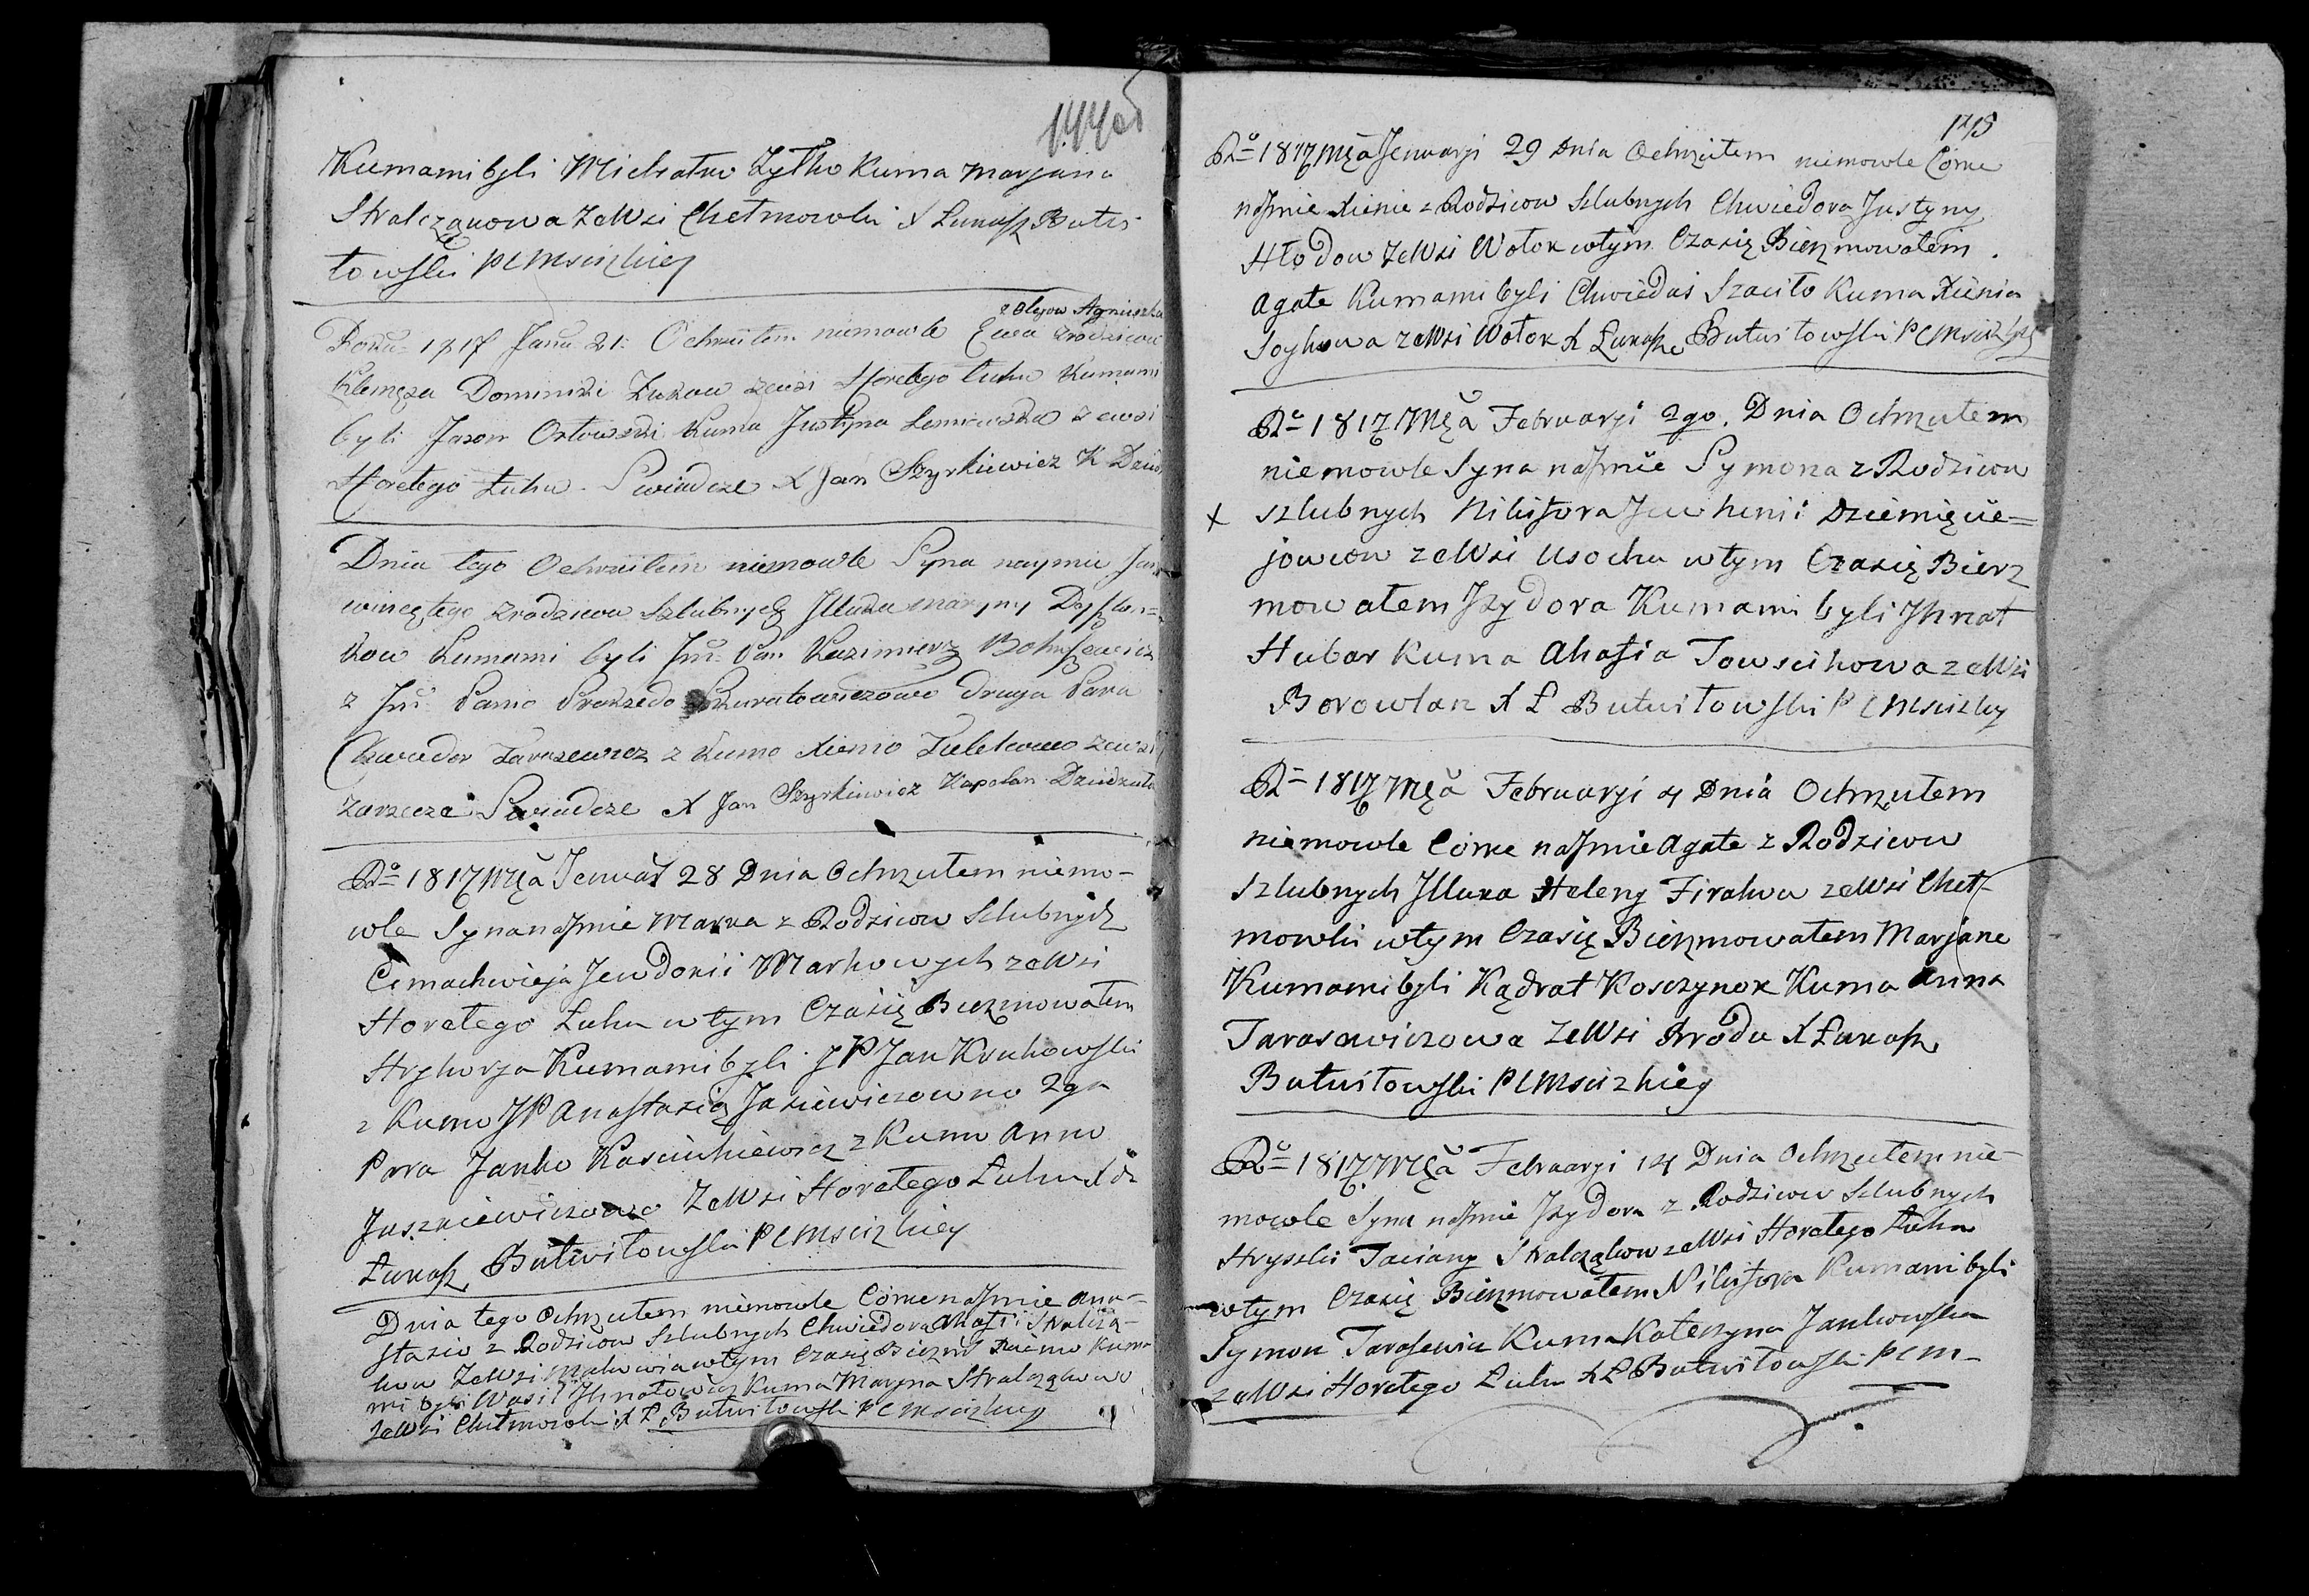 144 об
Kumami byli Michałko Zytko Kuma Maryana
Stralczqnowa ze Wsi Chełmowki X Łukasz Butwi
towski P C Mscizkiey
z Olejow Agnieszka
Roku 1817 Janu 21: Ochrzcilem niemowle Ewa z rodzicow
Klemęza Dominiki Zukow zewsi Horełego Łuhu Kumami
byli Jazon Orłowski Kuma Justyna Lesniewska z ewsi
Horełego Łuhu. Swiadcze X Jan Szyrkiewicz K Dzied
Dnia tego Ochrzcilem niemowle Syna naymie Jan
wincętego z rodzicow Szlubnych Illuka Maryny
kow Kumami byli Jm Pan Kazimierz Bohuszewicz
z Jm Panio Praxedo Szkuratowiczowo druga Para
Chwiedor Tarasewicz z Kumo Xienio zewsi
Zarzecza Swiadcze X Jan Szyrkiewicz Kapelan
Ro 1817 Mca Jenuar 28 Dnia Ochrzutem niemo-
wle Syna na Jmie Marka z Rodzicow Szlubnych
Cimachwieja Jewdokii Markowych ze Wsi
Horełego Łuhu w tym Czasię Bierzmowałem
Hryhorja Kumami byli J P Jan Krukowski
z Kumo J P Anastazią Jasiewiczowno 2ga
Para Janko Kasciukiewicz z Kumo Anno
Juszkiewiczowo Ze Wsi Horełego Łuhu X
Łukasz Butwiłowski P C Mscizkiey
Dnia tego Ochrzutem niemowle Córke na Jmie Ana-
stazio z Rodzicow Szlubnych Chwiedora Ahafii Stralczą-
kow Ze Wsi w tym Czasię Bierzm Xienio Kuma-
mi byli Wasil Jhnatowicz Kuma Maryna Stralcząkowo
ze Wsi Chełmowki X Ł Butwiłowski P C Mscizkiey
145
Ro 1817 Mca Jenuarji 29 Dnia Ochrzutem niemowle Córke
na Jmie Xienie z Rodzicow Szlubnych Chwiedora Justyny
Hłodow Ze Wsi Wołok w tym Czasię Bierzmowałem.
Agate Kumami byli Chwiedas Szaciło Kuma Xienia
ze Wsi Wołok X Łukasz Butwiłowski P C Mscizkiey
Ro 1817 Mca Februarji 2go. Dnia Ochrzutem
niemowle Syna na Jmie Symona z Rodzicow
x szlubnych Nikifora Jewhenii Dziemięie=
jowcow ze Wsi Usochu w tym Czasię Bierz
mowałem Jzydora Kumami byli Jhnat
Hubar Kuma Ahafia Towscikowa ze Wsi
Borowlan X Ł Butwiłowski P C Mscizkiey
Ro 1817 Mca Februarji 4 Dnia Ochrzutem
niemowle Córke na Jmie Agate z Rodzicow
Szlubnych Jlluka Heleny Firahow ze Wsi Cheł-
mowki w tym Czasię Bierzmowałem Marjane
Kumami byli Kądrat Kosczynok Kuma Anna
Tarasewiczowa Ze Wsi Brodu X Łukasz
Butwiłowski P C Mscizkiey
Ro 1817 Mca Februarji 14 Dnia Ochrzutem nie-
mowle Syna na Jmie Jzydora z Rodzicow Szlubnych
Hryszki Taciany Stralcząkow ze Wsi Horełego Łuha
w tym Czasię Bierzmowałem Nikifora Kumami byli
Symon Tarasewicz Kuma Katerzyna Jankowska
ze Wsi Horełego Łuhu X Ł Butwiłowski P C M-